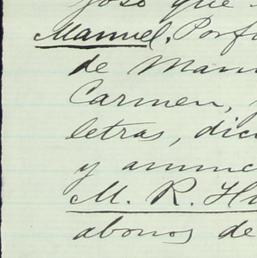 joso que
Manuel, Porf
de Man
Carmen,
letras, dic
y anunc
M. R. Hu
abonos de